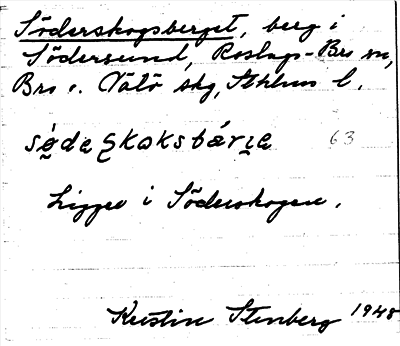 Söderskogsberget, berg i
Södersund, Roslags-Bro sn,
Bro o. Vätö skg, Sthlms l.
63
Ligger i Söderskogen.
Kerstin Stenberg 1948